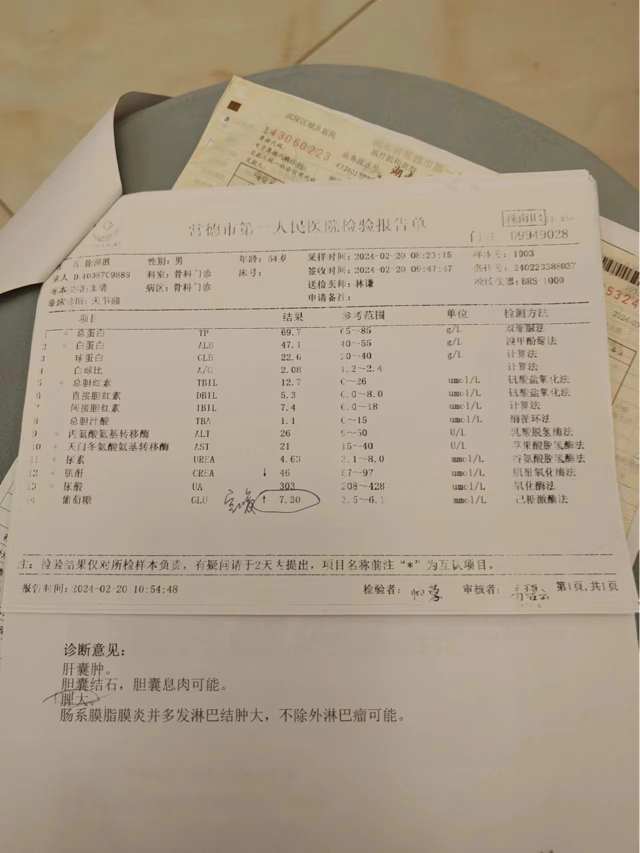 武陵区城乡居民
143060223
常德市第一人民医院检验报告单
09949028
性别:男 年龄:54岁 采样时间:2024-02-20 08:23:15 1003
科室:骨科门诊 床号: 签收时间:2024-02-20 09:47:47 240223388037
病区:骨科门诊 送检医师:林谦 BRS-1000
申请备注:
项目 结果 参考范围 单位 检测方法
1 * 总蛋白 TP 69.7 65-85 g/L 双缩脲法
2 * 白蛋白 ALB 47.1 40-55 g/L 溴甲酚绿法
3 球蛋白 GLB 22.6 20-40 g/L 计算法
4 白球比 A/G 2.08 1.2-2.4 计算法
5 * 总胆红素 TBIL 12.7 0-26 umol/L 钒酸盐氧化法
6 直接胆红素 DBIL 5.3 0.0-8.0 umol/L 钒酸盐氧化法
7 间接胆红素 IBIL 7.4 0.0-18 umol/L 计算法
8 总胆汁酸 TBA 1.1 0-15 umol/L 酶循环法
9 * 丙氨酸氨基转移酶 ALT 26 9-50 U/L 乳酸脱氢酶法
10 * 天门冬氨酸氨基转移酶 AST 21 15-40 U/L 苹果酸脱氢酶法
11 * 尿素 UREA 4.63 3.1-8.0 mmol/L 谷氨酸脱氢酶法
12 * 肌酐 CREA ↓ 46 57-97 umol/L 肌氨酸氧化酶法
13 * 尿酸 UA 303 208-428 umol/L 氧化酶法
14 葡萄糖 GLU ↑ 7.30 3.5-6.1 mmol/L 己糖激酶法
注:检验结果仅对所检样本负责,有疑问请于2天内提出,项目名称前注"*"为互认项目。
报告时间:2024-02-20 10:54:48 检验者: 审核者: 第1页,共1页
诊断意见:
肝囊肿。
胆囊结石,胆囊息肉可能。
脾大。
肠系膜脂膜炎并多发淋巴结肿大,不除外淋巴瘤可能。